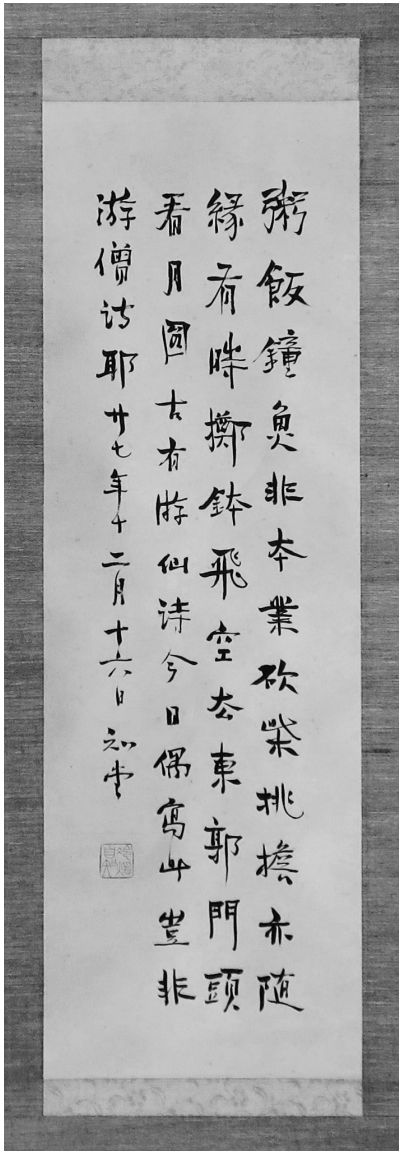 粥飯鐘魚非本業砍柴挑擔亦随
緣有時擲鉢飛空去東郭門頭
看月圓古有游仙詩今日偶寫此豈非
游僧詩耶廿七年十二月十六日知堂